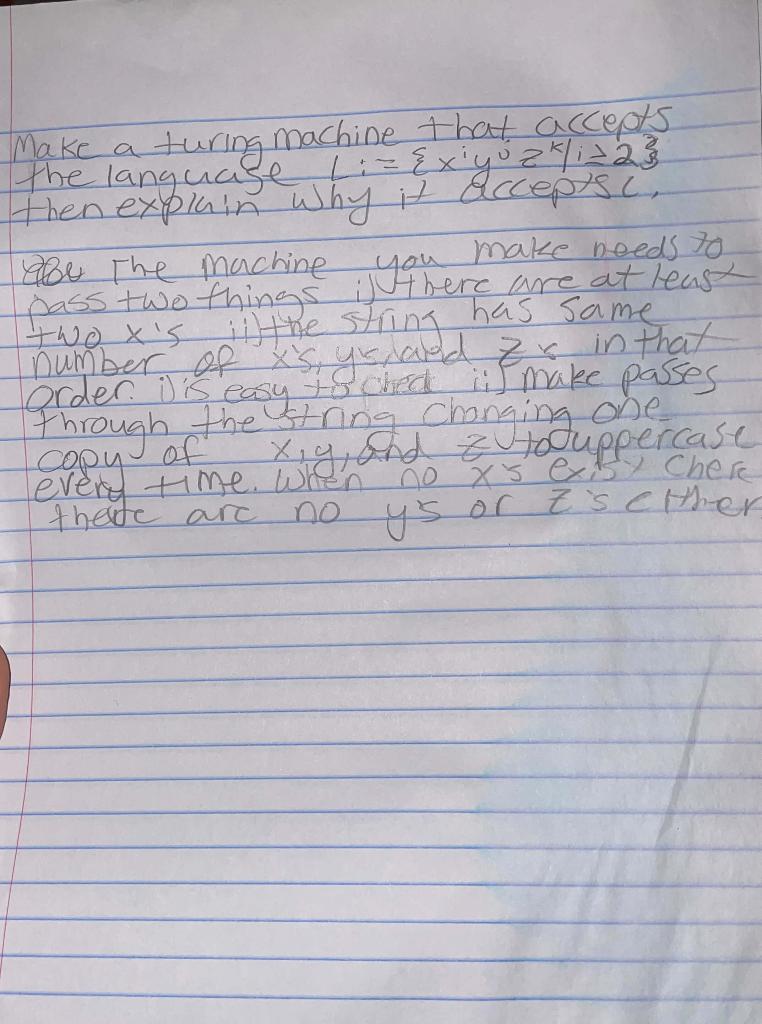 Make a turing machine that accepts
the language L := {xⁱyʲzᵏ/i≥2}
then explain why it accepts L.
The machine you make needs to
pass two things i) there are at least
two x's ii) the string has same
number of x's, y's, and z's in that
order. i) is easy to check ii) make passes
through the string changing one
copy of x, y, and z to uppercase
every time. When no x's exist check
there are no ys or z's either